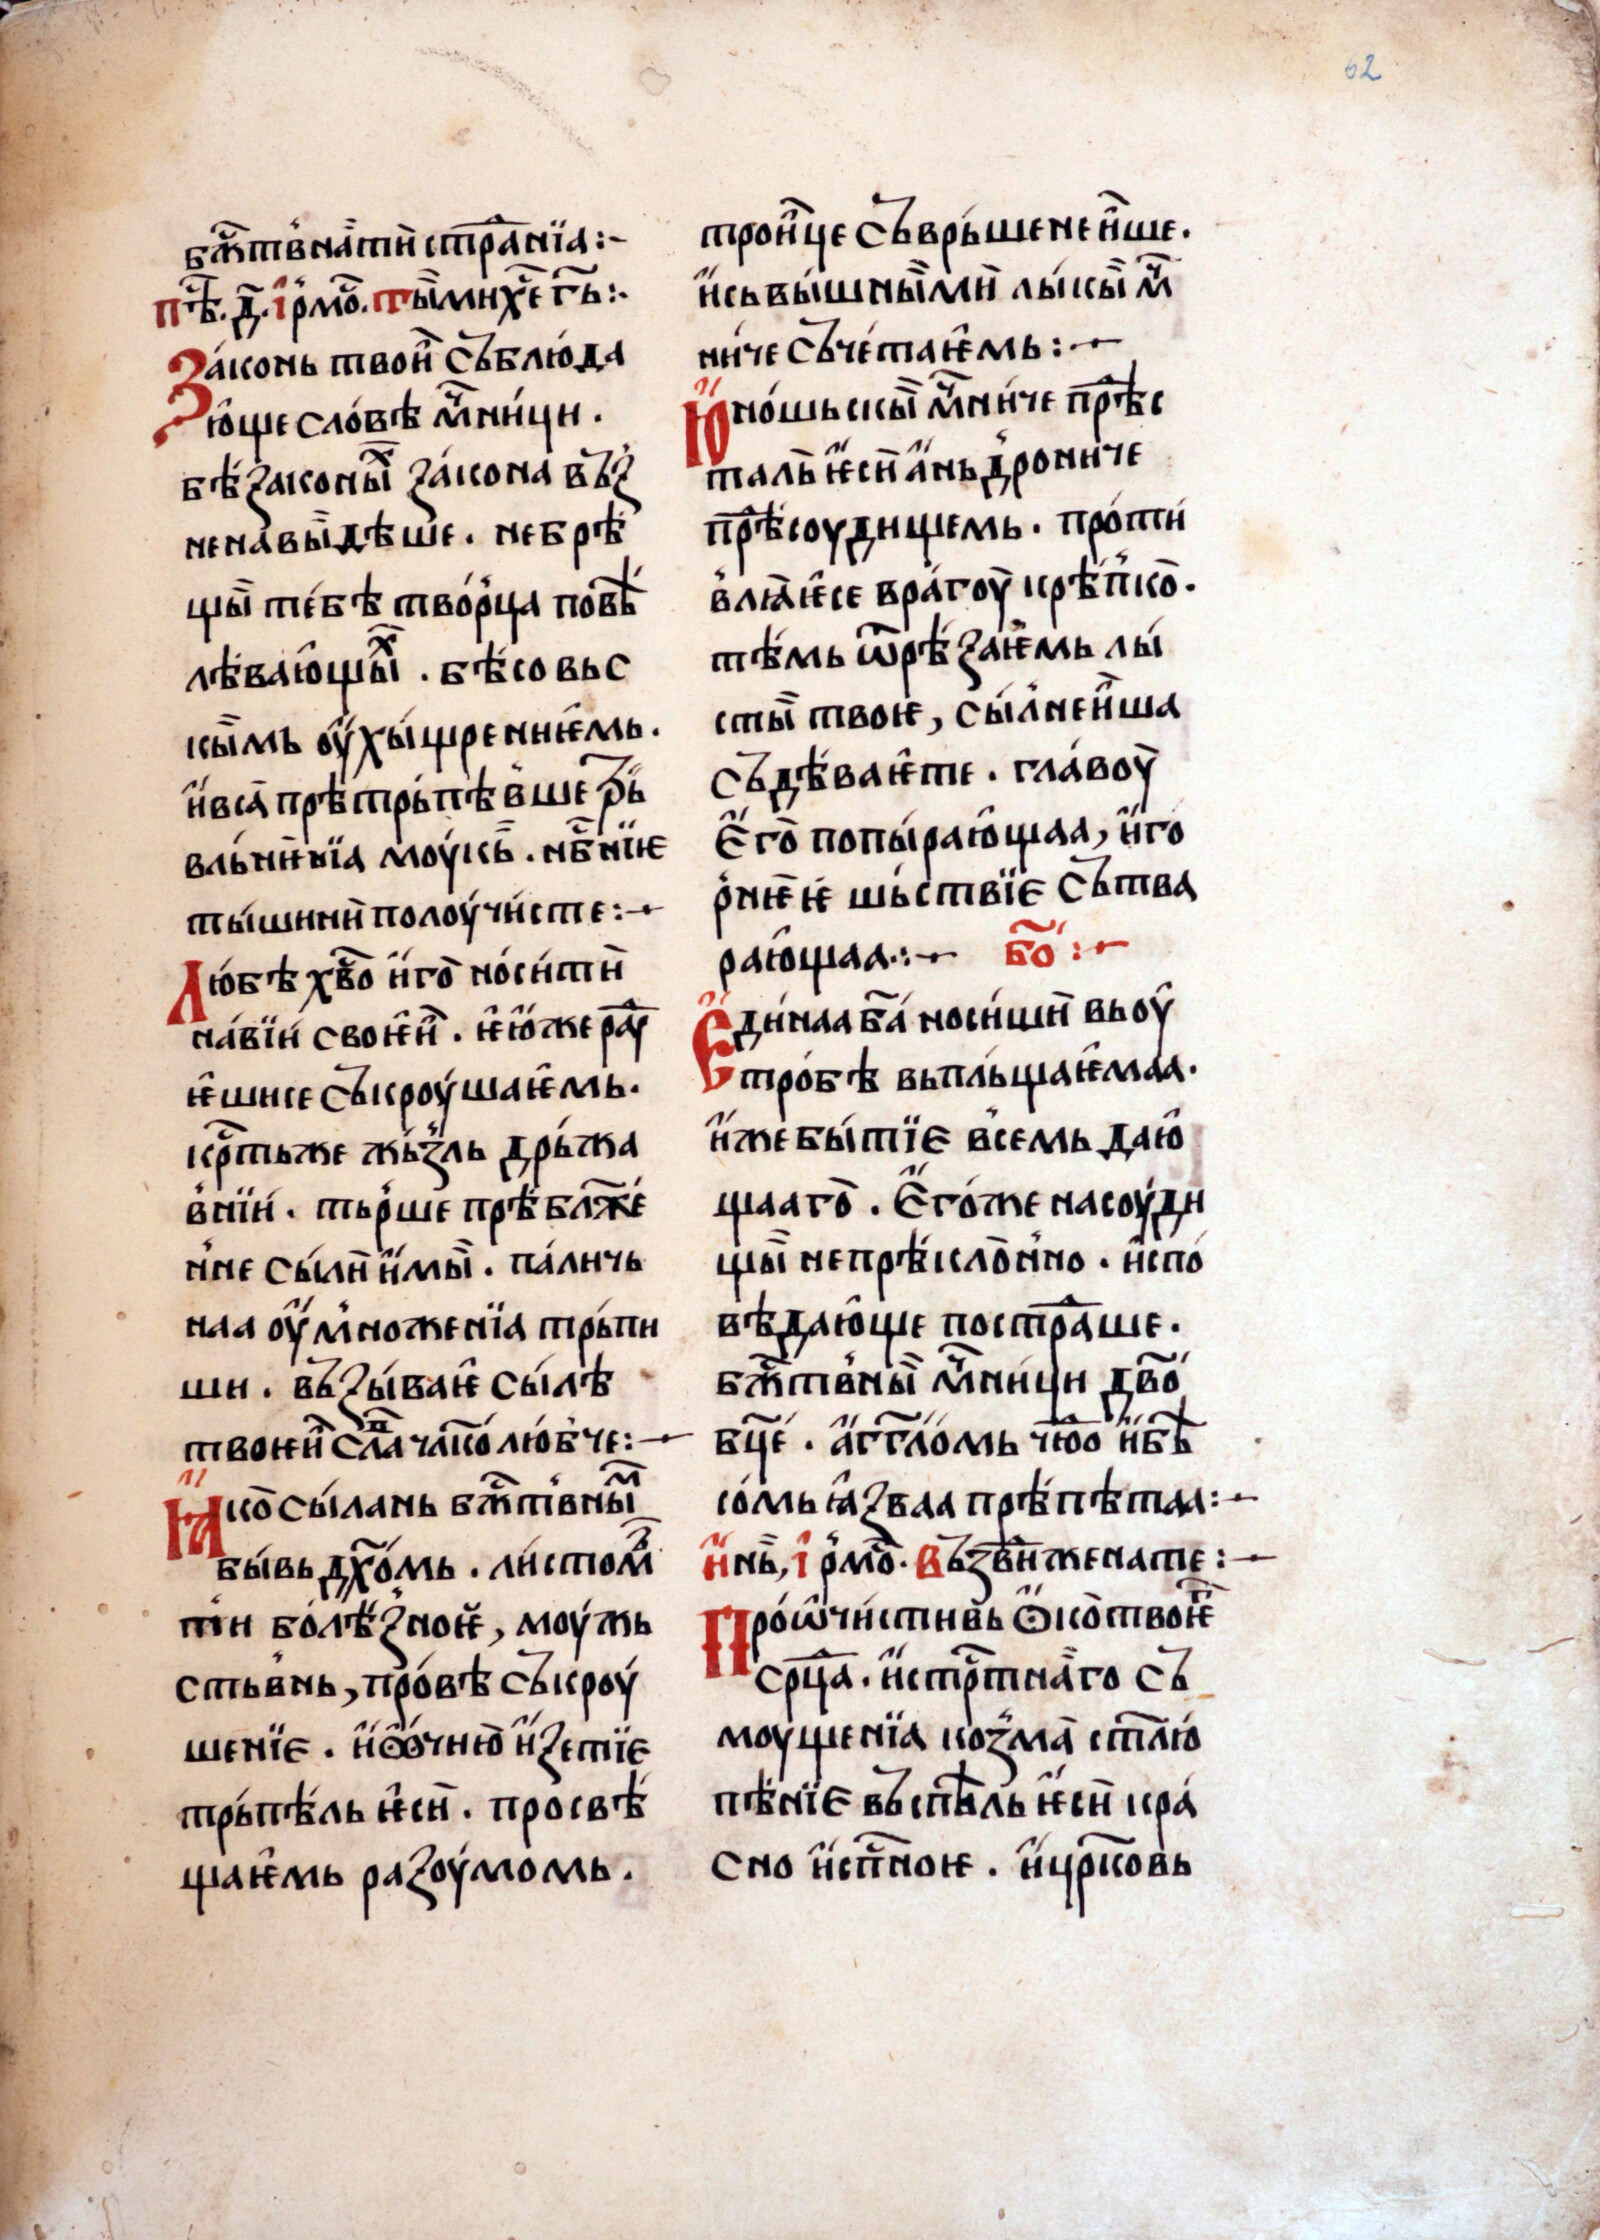 62
бж҃тв́на̏ти стра҃нїа :~
пѣ҃. д҃. і҆рмо҃. ты̏мих҃е гь҃ :~
За́конь твои̏ съблю́да
ю҆ще сло́вѣ мч҃ни́ци .
бѣзаконы̏х за́кона въз
ненавы̏дѣше . небрѣ
щы̏ те́бѣ тво́рца повѣ́
лѣ́ваю҆щы̏х . бѣ́совьс
кы̏мь оу҆хы́щреннѥмь .
и҆вса̏ прѣтрь́пѣв́ше рь́
вль́ни̏нїа моу́кь҃ . нб҃нїѥ
ты́шини̏ полоу́чи́сте :~
Лю́бѣ хв҃о и҆го̏ но́си́ти̏
на́вїи́ своѥи̏ . ѥю҆же раз
ѥ҆шисе съкроу́шаѥ҆мь .
кр҃тьже жь́зль дрь́жа
в́нїи́ . тьр́ше прѣбл҃же́
н́не сы́ли̏ и҆мы̏ . па́личь
наа оу҆мно́женїа трь́пи
ши . въ́зы́ваѥ҆ сы́лѣ
твоѥи̏ сп҃са чл҃ко лю́б́че :~
Ꙗ҆ко̏ сы́лань бж҃тв́ны̏м
бы́вь дх҃омь . ли́стом̏
ти̏ бо́лѣ́зноѥ҆ , моу́жь
стьв́нь , про́вѣ съкроу́
шенїе . и҆ѻ҆чию̏ и҆зетїе
трь́пѣ́ль ѥ҆си̏ . просвѣ́
щаѥ҆мь разоу́момь .
трои̏це съврь́шенеи̏ше .
и҆сьвы́шны̏ми̏ лы́кы̏ мч҃
ни́че съче́таѥ҆мь :~
Ю҆но́шьскы̏ мч҃ни́че прѣ҃с
таль̏ ѥ҆си̏ а҆ньдро́ниче
прѣ҃соудищемь . про́ти
в́лꙗ̏ѥ҆се вра́гоу̏ крѣп́ко̏ .
тѣ́мь ѿрѣ́заѥ҆мь лы́
сты̏ твоѥ , сы́лнеи̏ша
съдѣ́ваѥ҆те . гла́воу̏
Е҆го̏ попы́раю҆щаа , и҆го́
р́нѥѥ шь́ствїе сътва
раю҆щаа :~ бо҃ :~
Е҆ди́наа ба҃ носи́ши̏ вьоу҆
тро́бѣ вьпль́щаѥ҆маа .
и҆жебы́тїе в́семь даю҆
щааго̏ . Е҆го́же насоу́ди
щы̏ непрѣ́кло̏н́но . и҆спо́
вѣдаю҆ще постра҃ше .
бж҃тв́ны̏ мч҃ни́ци дв҃о́
бц҃е . а҆гг҃ло́мь чю҃о и҆бѣ́
со́мь ꙗ҆́зваа прѣ́пѣ́таа :~
и҆нь҃ , і҆рмо҃ . Въ́зви҃женате :~
Про́ѡ҆чи́стивь ѻ҆ко̏ твоѥ̏г
ср҃ца . и҆стр҃тна̏го съ
моущенїа козма̏ ст҃лю́
пѣ́нїе въ́спѣ҃ль ѥ҆си̏ кра́
сно и҆сп҃ноѥ . и҆црк҃овь